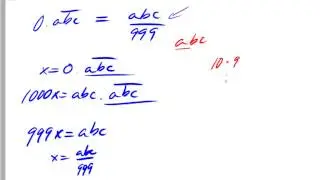 0.a̅b̅c̅ = abc/999
abc
x=0.a̅b̅c̅
10·9
1000x=abc.a̅b̅c̅
999x=abc
x=abc/999